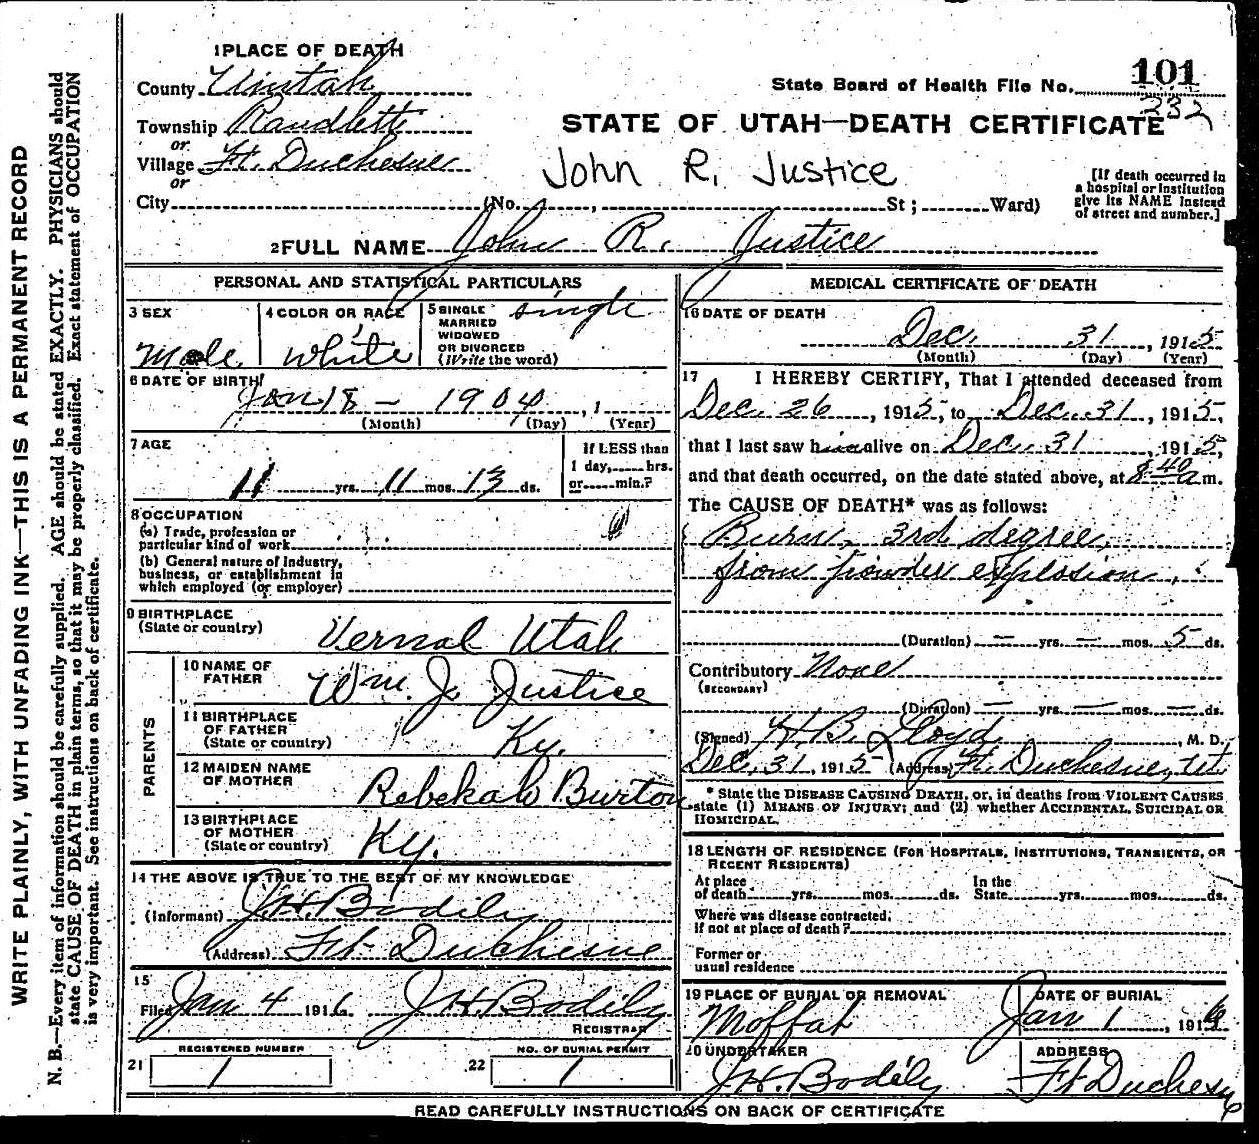 WRITE PLAINLY, WITH UNFADING INK—THIS IS A PERMANENT RECORD
N. B.—Every item of information should be carefully supplied. AGE should be stated EXACTLY. PHYSICIANS should
state CAUSE OF DEATH in plain terms, so that it may be properly classified. Exact statement of OCCUPATION
is very important. See instructions on back of certificate.
1 PLACE OF DEATH
County Uintah
Township Randlett
or
Village Ft. Duchesne
or
City (No. , St ; Ward)
State Board of Health File No. 101
232
STATE OF UTAH—DEATH CERTIFICATE
John R. Justice
[If death occurred in
a hospital or institution
give its NAME instead
of street and number.]
2 FULL NAME John R. Justice
PERSONAL AND STATISTICAL PARTICULARS
3 SEX
Male
4 COLOR OR RACE
White
5 SINGLE
MARRIED
WIDOWED
OR DIVORCED
(Write the word)
Single
6 DATE OF BIRTH
Jan 18 – 1904, 1
(Month) (Day) (Year)
7 AGE
11 yrs. 11 mos. 13 ds.
If LESS than
1 day, hrs.
or min.?
8 OCCUPATION
(a) Trade, profession or
particular kind of work
(b) General nature of industry,
business, or establishment in
which employed (or employer)
9 BIRTHPLACE
(State or country)
Vernal Utah
PARENTS
10 NAME OF
FATHER
Wm. J. Justice
11 BIRTHPLACE
OF FATHER
(State or country)
Ky.
12 MAIDEN NAME
OF MOTHER
Rebekah Burton
13 BIRTHPLACE
OF MOTHER
(State or country)
Ky.
14 THE ABOVE IS TRUE TO THE BEST OF MY KNOWLEDGE
(Informant) J H Bodily
(Address) Ft Duchesne
15
Filed Jan 4 1916 J H Bodily
REGISTRAR
REGISTERED NUMBER
21 1
NO. OF BURIAL PERMIT
22 1
MEDICAL CERTIFICATE OF DEATH
16 DATE OF DEATH
Dec. 31, 1915
(Month) (Day) (Year)
17 I HEREBY CERTIFY, That I attended deceased from
Dec. 26, 1915, to Dec. 31, 1915,
that I last saw him alive on Dec. 31, 1915,
and that death occurred, on the date stated above, at 8:40 a m.
The CAUSE OF DEATH* was as follows:
Burn, 3rd degree,
from powder explosion,
(Duration) — yrs. — mos. 5 ds.
Contributory None
(SECONDARY)
(Duration) — yrs. — mos. — ds.
(Signed) H. B. Lloyd, M. D.
Dec. 31, 1915 (Address) Ft. Duchesne, Ut
* State the DISEASE CAUSING DEATH, or, in deaths from VIOLENT CAUSES
state (1) MEANS OF INJURY; and (2) whether ACCIDENTAL, SUICIDAL OR
HOMICIDAL.
18 LENGTH OF RESIDENCE (FOR HOSPITALS, INSTITUTIONS, TRANSIENTS, OR
RECENT RESIDENTS)
At place In the
of death yrs. mos. ds. State yrs. mos. ds.
Where was disease contracted,
if not at place of death?
Former or
usual residence
19 PLACE OF BURIAL OR REMOVAL
Moffat
DATE OF BURIAL
Jan 1, 1916
20 UNDERTAKER
J. H. Bodily
ADDRESS
Ft Duchesne
READ CAREFULLY INSTRUCTIONS ON BACK OF CERTIFICATE